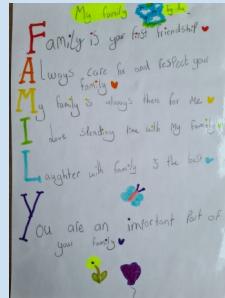 My family by
Family is your first friendship
Always care for and respect your
family
My family is always there for me
I love spending time with my family
Laughter with family is the best
You are an important part of
your family